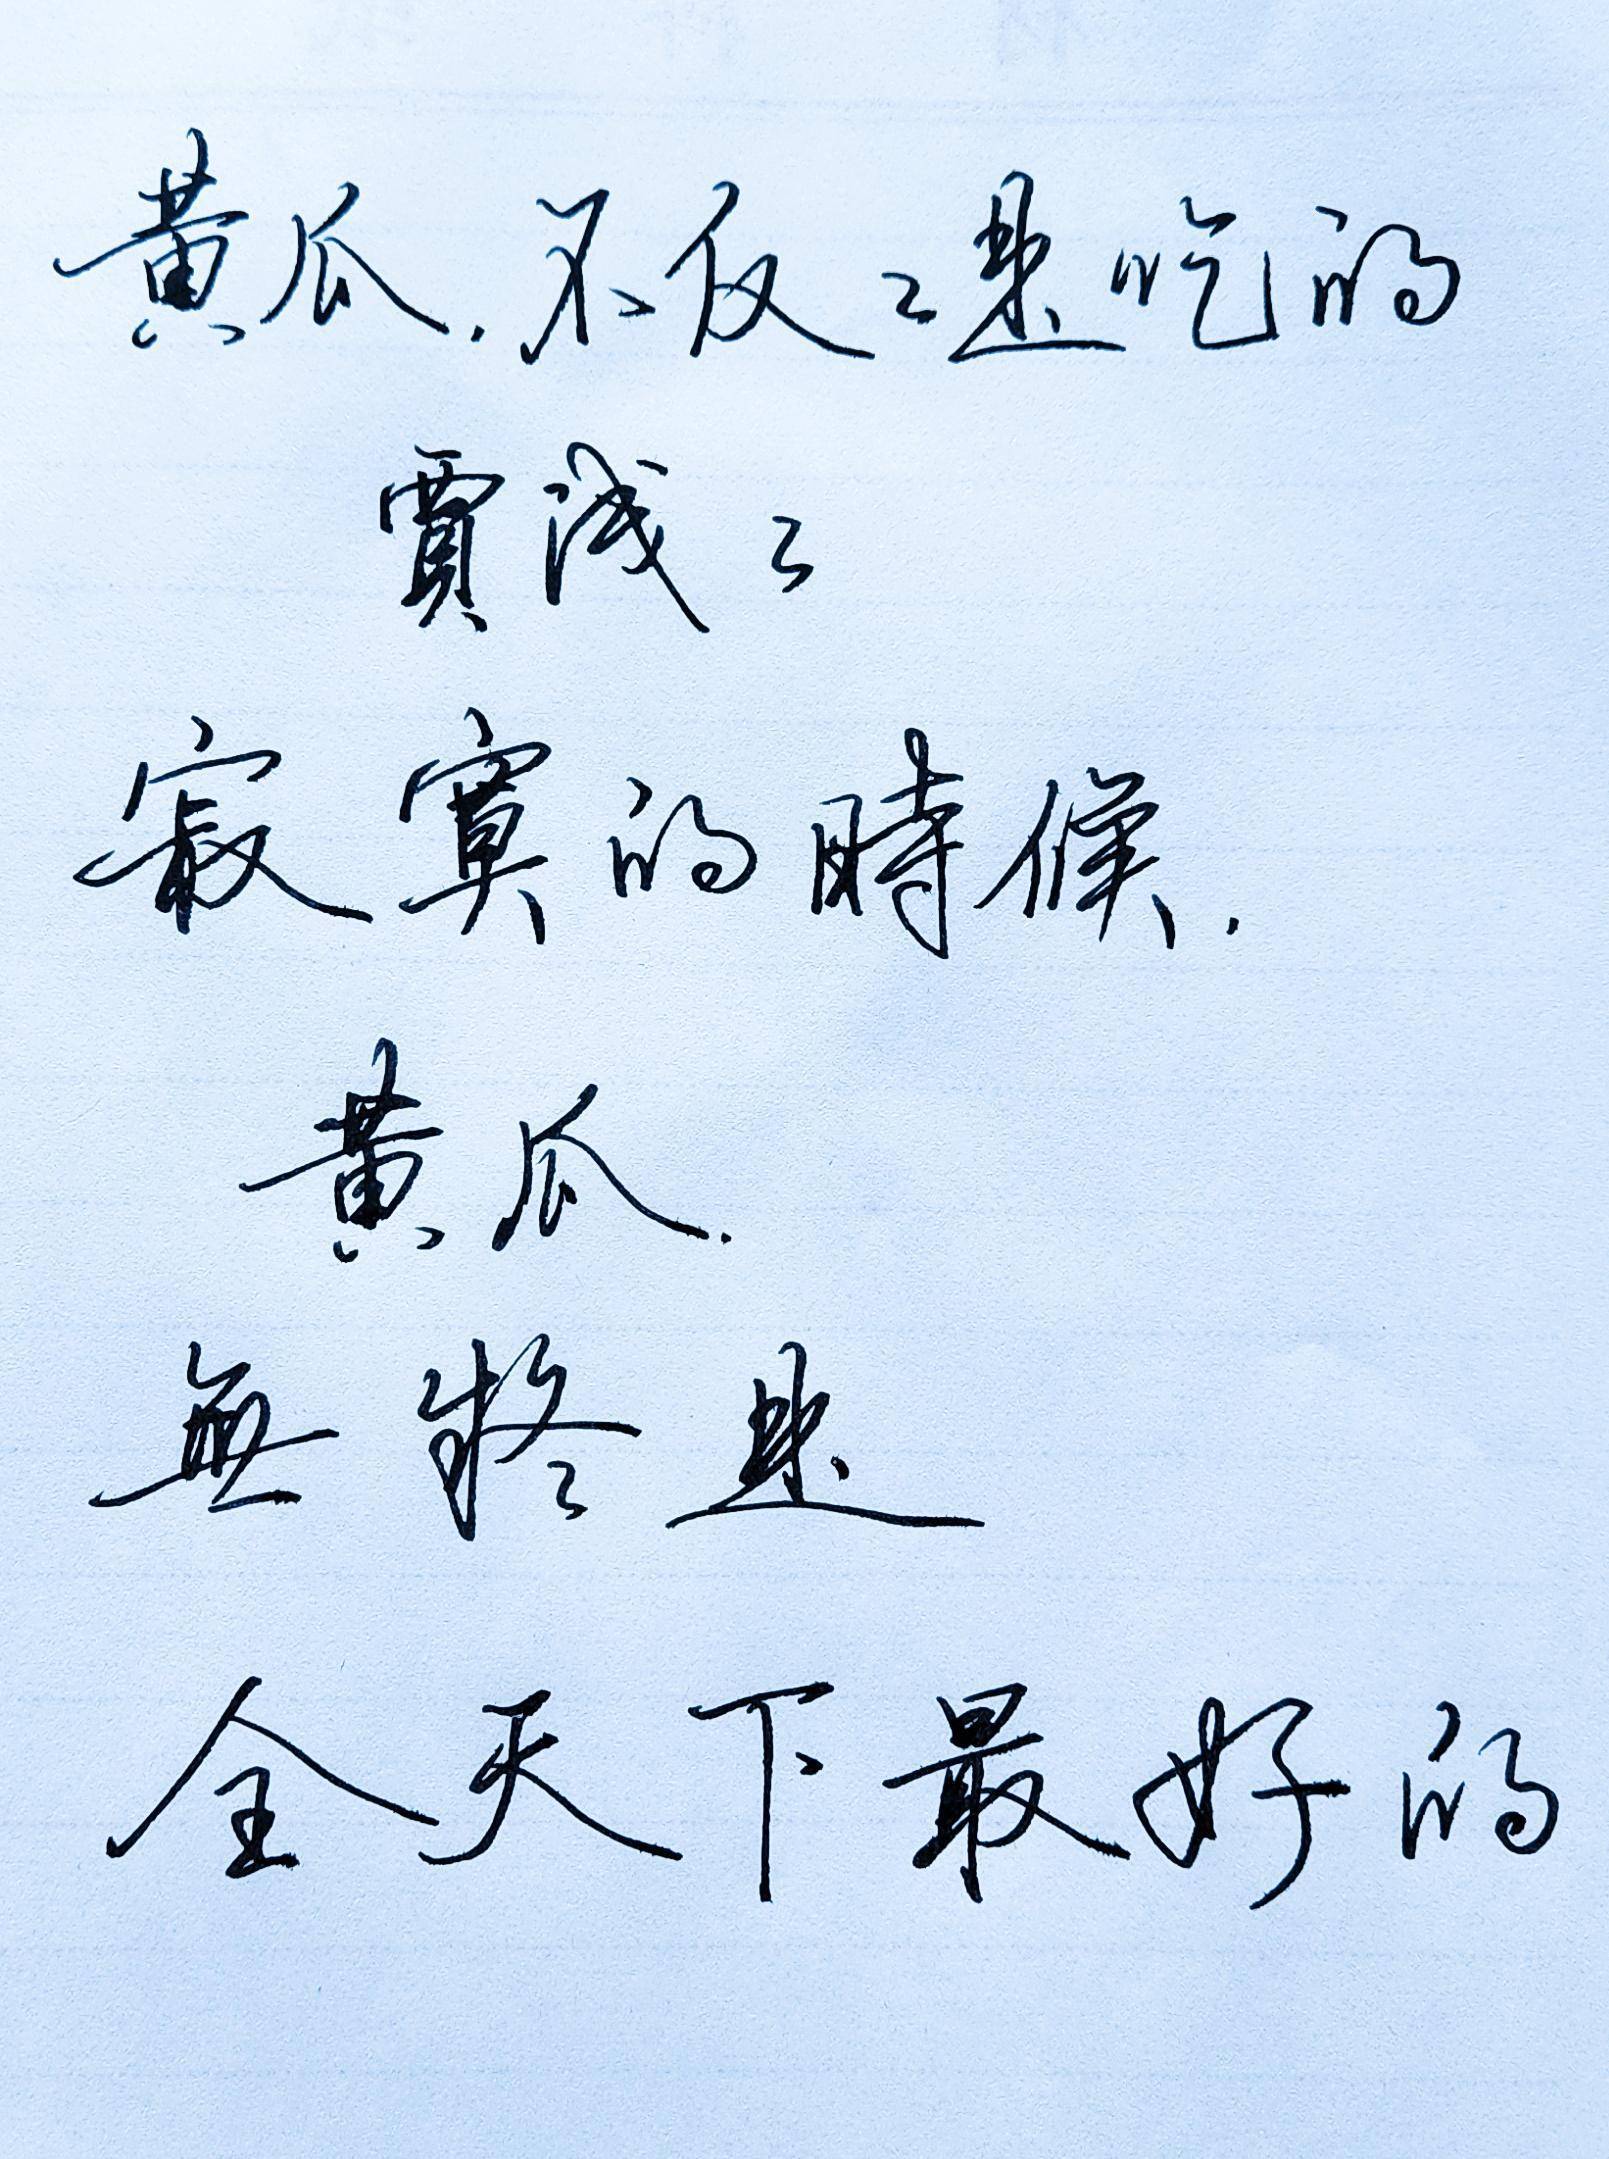 黄瓜.不仅仅是吃的
賈浅浅
寂寞的時候.
黄瓜.
無疑是
全天下最好的